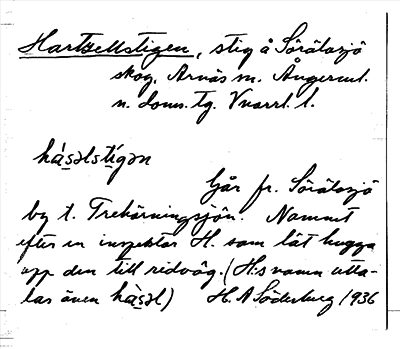 Hartzellstigen, stig å Sörälasjö
skog, Arnäs sn. Ångerml.
n. doms. Tg. Vnorrl. l.
hà̱ṣəlstígən
Går fr. Sörälasjö
by t. Trehörningsjön. Namnet
efter en inspektor H. som lät hugga
upp den till ridväg. (H:s namn utta-
las även hà̱ṣəl) H. A Söderberg 1936